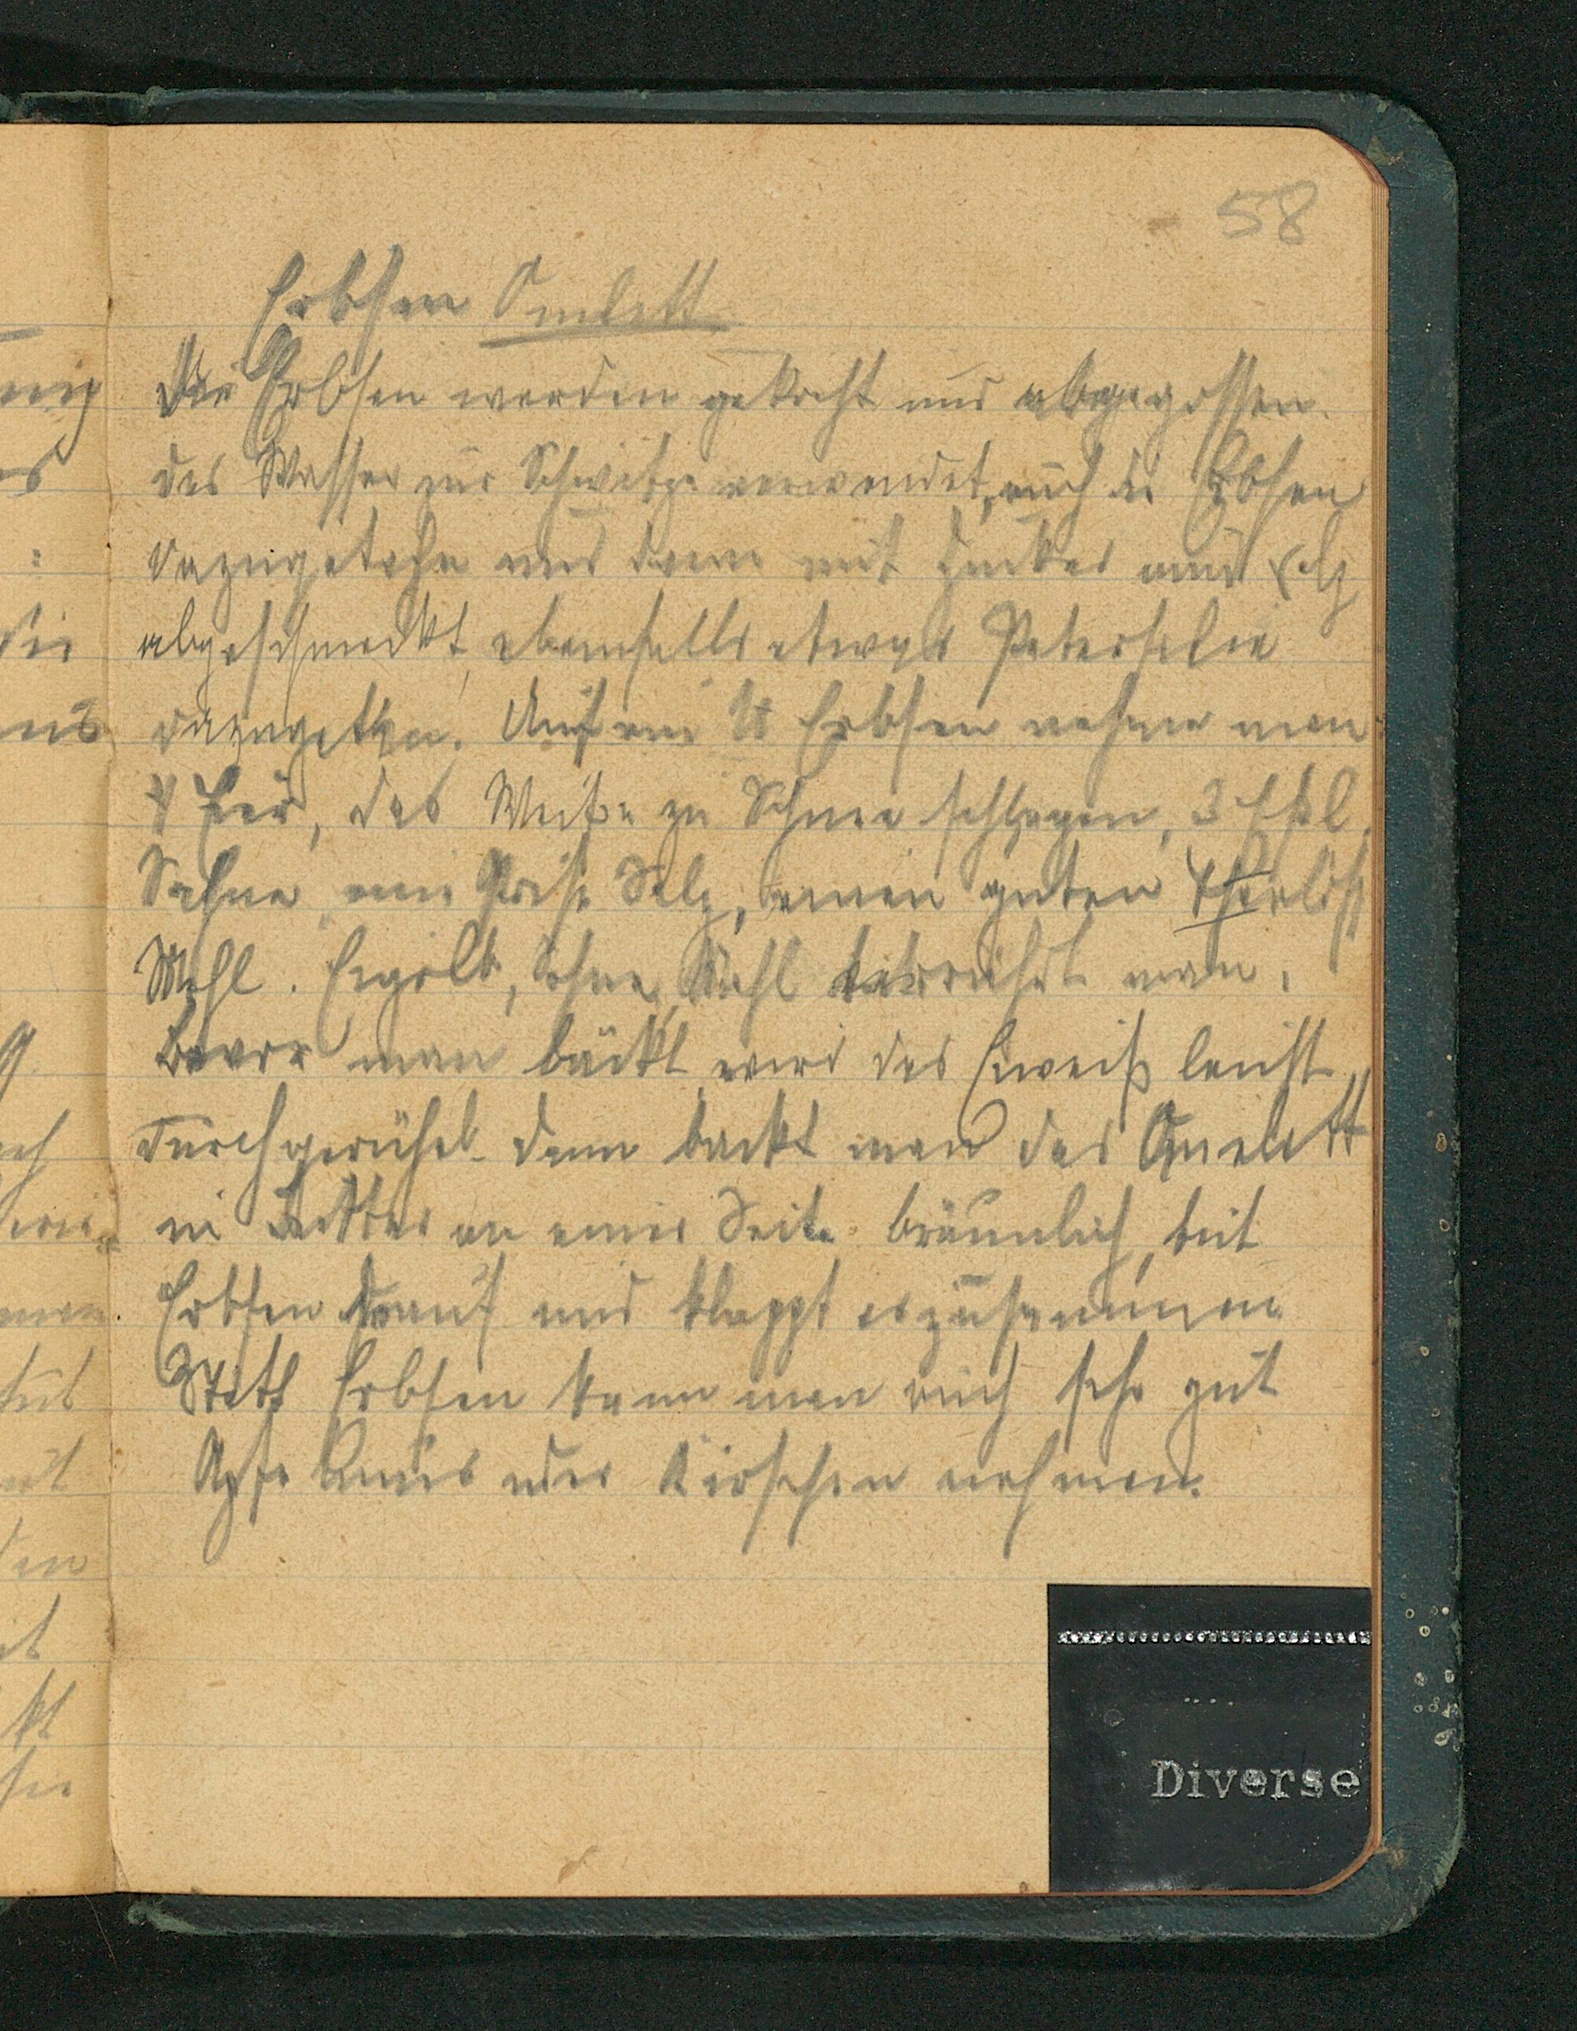 58
Erbsen Omlett
Die Erbsen werden gekocht und abgegossen.
das Wasser zur Schwitze verwendet, auch die Erbsen
dazugetahn und dann mit Zucker und Salz
abgeschmeckt, ebenfalls etwas Petersilie
dazugethan. Auf ein ℔ Erbsen nehme man
4 Eier, das Weiße zu Schnee schlagen, 3 Eßl.
Sahne eine Prise Salz, einen guten
Mehl. Eigelb, Sahne, Mehl man.
Bevor man bäckt wird das Eiweiß leicht
durchgerührt. dann backt man das Omelett
in Butter an einer Seite bräunlich, tut
Erbsen drauf und klappt es zusammen
Statt Erbsen kann man auch sehr gut
Apfelmus oder Kirschen nehmen.
Diverse
nig
die
und